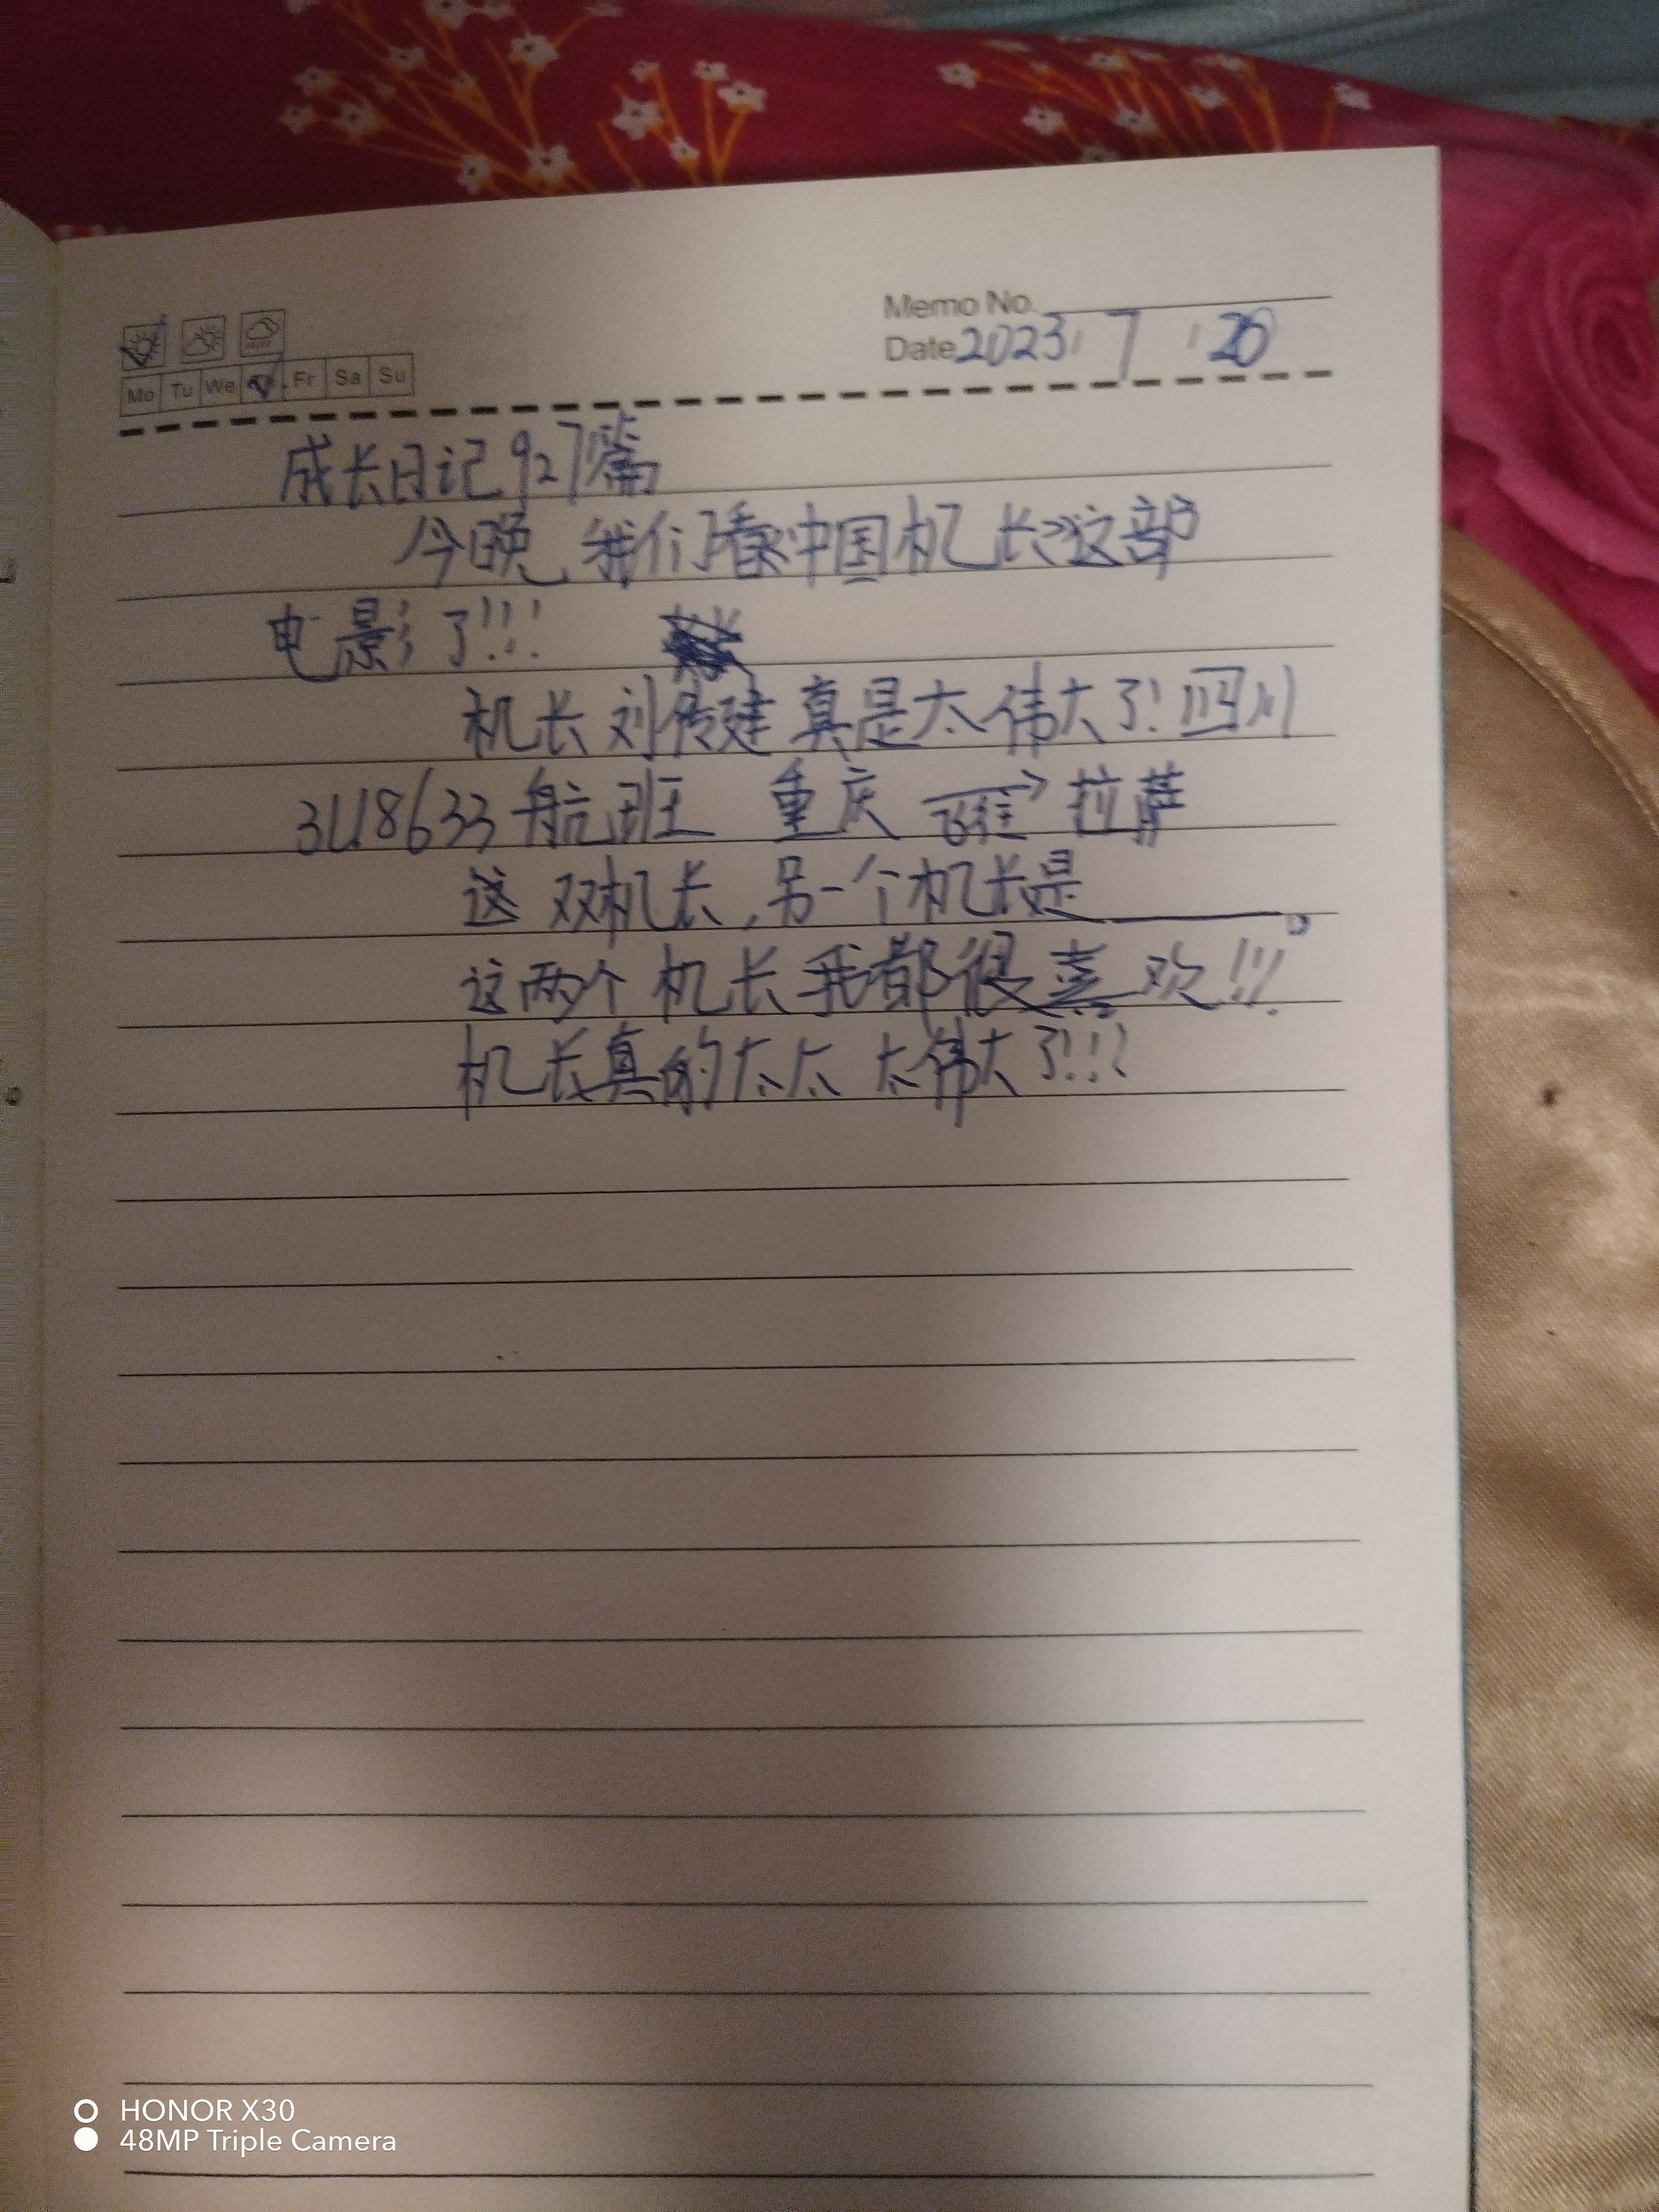 Memo No.
Date 2023 7 20
Mo Tu We Th Fr Sa Su
成长日记927篇
今晚我们看《中国机长》这部
电影了!!!
机长刘传建真是太伟大了!四川
3U8633航班 重庆 飞往 拉萨
这双机长,另一个机长是______。
这两个机长我都很喜欢!!!
机长真的太太太伟大了!!!
HONOR X30
48MP Triple Camera